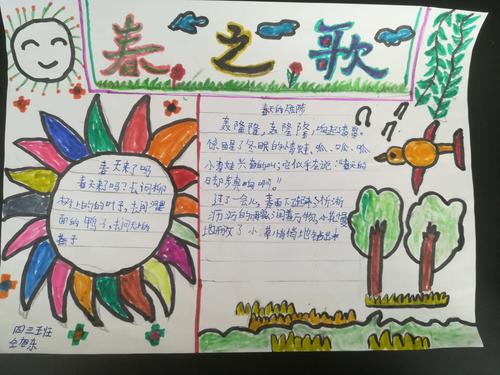 春之歌
春天来了吗
春天来了吗?去问柳
树上的的叶子,去问河里
面的鸭子,去问天上的
燕子
春天的
轰隆隆,轰隆隆,响起
惊醒了冬眠的小青蛙、呱、呱、呱
小青蛙兴奋的叫,它似乎在说:"春天的
过了一会儿,春雨下起来了,淅淅
沥沥的 润着万物,小花慢
地开放了小草悄悄地钻出来
四三班